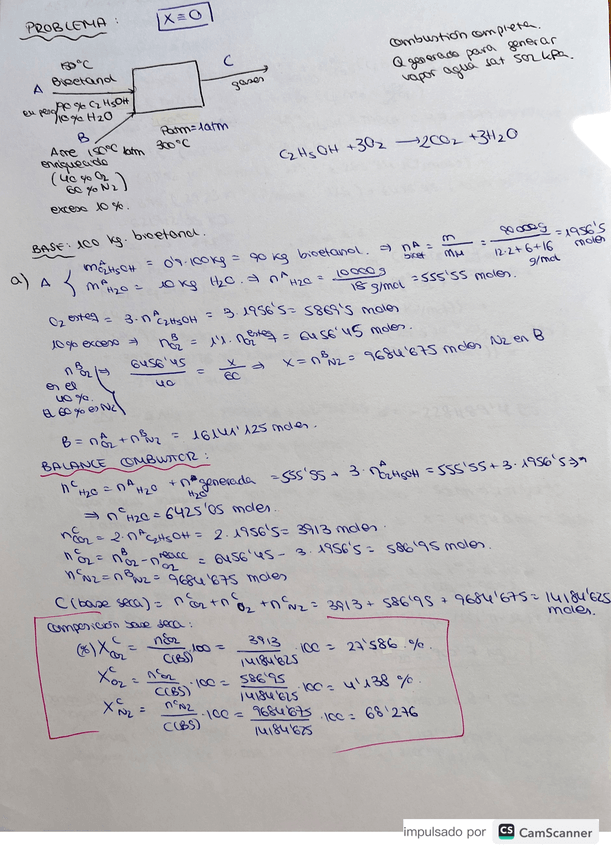 PROBLEMA: X=0
combustión completa.
Q generado para generar
vapor agua sat 502 kPa.
150°C
A Bioetanol
C
gases
en peso 90% C2H5OH
10% H2O
B
Aire 150°C 1atm
enriquecido
(40% O2
60% N2)
exceso 10%.
Patm=1atm
300°C
C2H5OH + 3O2 → 2CO2 + 3H2O
BASE: 100 kg. bioetanol.
a) A { m^A C2H5OH = 0'9·100kg = 90 kg bioetanol. ⇒ n^A bioet = m/MM = 90000g/(12·2+6+16 g/mol) = 1956'5 moles
m^A H2O = 10 kg H2O. ⇒ n^A H2O = 10000g/18 g/mol = 555'55 moles.
O2 esteq = 3·n^A C2H5OH = 3·1956'5 = 5869'5 moles
10% exceso ⇒ n^B O2 = 1'1·n O2 esteq = 6456'45 moles.
n^B O2 ⇒ 6456'45/40 = x/60 ⇒ x = n^B N2 = 9684'675 moles N2 en B
es el
40%.
El 60% es N2
B = n^B O2 + n^B N2 = 16141'125 moles.
BALANCE COMBUSTOR:
n^C H2O = n^A H2O + n H2O generada = 555'55 + 3·n^A C2H5OH = 555'55 + 3·1956'5 ⇒
⇒ n^C H2O = 6425'05 moles.
n^C CO2 = 2·n^A C2H5OH = 2·1956'5 = 3913 moles.
n^C O2 = n^B O2 - n O2 reacc = 6456'45 - 3·1956'5 = 586'95 moles.
n^C N2 = n^B N2 = 9684'675 moles
C (base seca) = n^C CO2 + n^C O2 + n^C N2 = 3913 + 586'95 + 9684'675 = 14184'625 moles.
Composición base seca:
(%) X^C CO2 = n^C CO2/C(BS) · 100 = 3913/14184'625 · 100 = 27'586 %.
X^C O2 = n^C O2/C(BS) · 100 = 586'95/14184'625 · 100 = 4'138 %.
X^C N2 = n^C N2/C(BS) · 100 = 9684'675/14184'625 · 100 = 68'276
impulsado por CS CamScanner